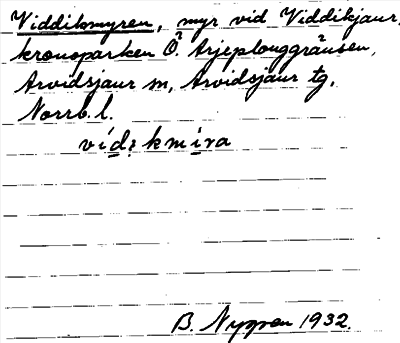 Viddikmyren, myr vid Viddikjaur,
kronoparken Ö. Arjeplouggränsen,
Arvidsjaur sn, Arvidsjaur tg,
Norrb. l.
1932.